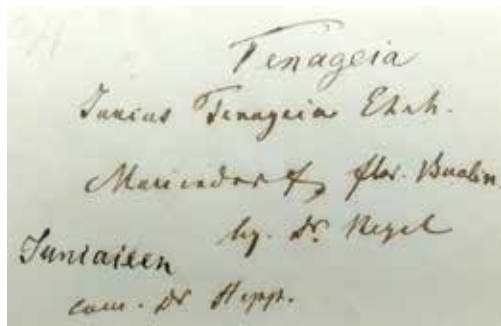 Tenageia
Juncus Tenageia Ehrh.
Mariendorf, flor. Berolin
lg. Dr. Regel
Juncaieen
com. Dr Hepp.